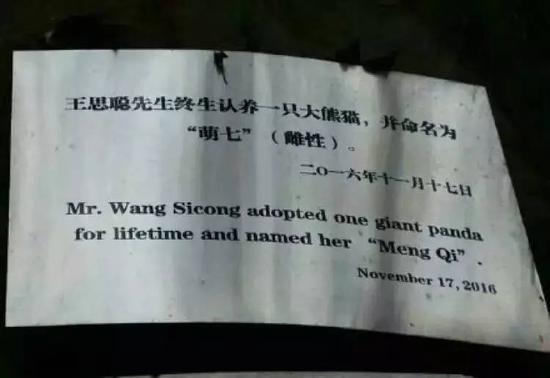 王思聪先生终生认养一只大熊猫，并命名为
“萌七”（雌性）。
二〇一六年十一月十七日
Mr. Wang Sicong adopted one giant panda
for lifetime and named her “Meng Qi”.
November 17, 2016